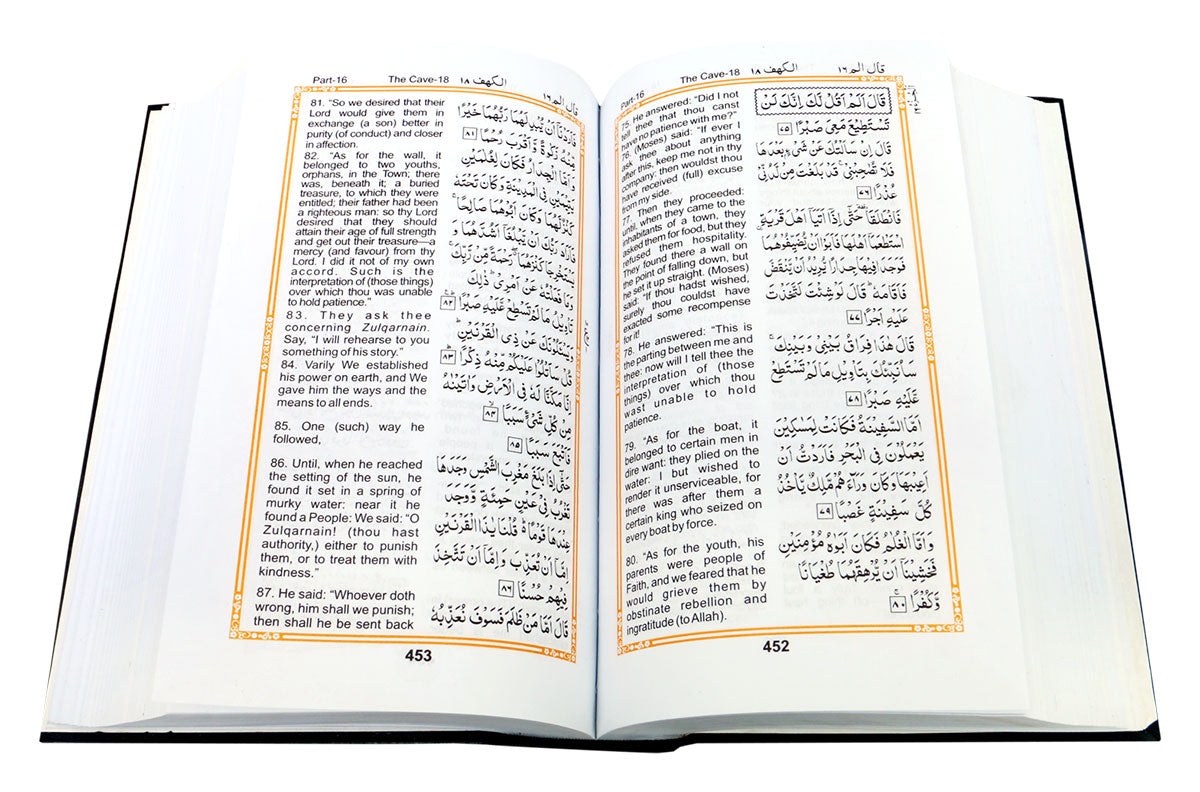 Part-16 The Cave-18 الكهف ١٨ قال الم ١٦
75. He answered: “Did I not
tell thee that thou canst
have no patience with me?”
76. (Moses) said: “If ever I
ask thee about anything
after this, keep me not in thy
company: then wouldst thou
have received (full) excuse
from my side.
77. Then they proceeded:
until, when they came to the
inhabitants of a town, they
asked them for food, but they
refused them hospitality.
They found there a wall on
the point of falling down, but
he set it up straight. (Moses)
said: “If thou hadst wished,
surely thou couldst have
exacted some recompense
for it!
78. He answered: “This is
the parting between me and
thee: now will I tell thee the
interpretation of (those
things) over which thou
wast unable to hold
patience.
79. “As for the boat, it
belonged to certain men in
dire want: they plied on the
water: I but wished to
render it unserviceable, for
there was after them a
certain king who seized on
every boat by force.
80. “As for the youth, his
parents were people of
Faith, and we feared that he
would grieve them by
obstinate rebellion and
ingratitude (to Allah).
قَالَ اَلَمْ اَقُلْ لَّكَ اِنَّكَ لَنْ
تَسْتَطِيْعَ مَعِىَ صَبْرًا ٧٥
قَالَ اِنْ سَاَلْتُكَ عَنْ شَىْءٍۭ بَعْدَهَا
فَلَا تُصٰحِبْنِىْ ۚ قَدْ بَلَغْتَ مِنْ لَّدُنِّىْ
عُذْرًا ٧٦
فَانْطَلَقَا ۥ حَتّٰٓى اِذَآ اَتَيَآ اَهْلَ قَرْيَةِ ۨ
اسْتَطْعَمَآ اَهْلَهَا فَاَبَوْا اَنْ يُّضَيِّفُوْهُمَا
فَوَجَدَا فِيْهَا جِدَارًا يُّرِيْدُ اَنْ يَّنْقَضَّ
فَاَقَامَهٗ ؕ قَالَ لَوْ شِئْتَ لَتَّخَذْتَ
عَلَيْهِ اَجْرًا ٧٧
قَالَ هٰذَا فِرَاقُ بَيْنِىْ وَبَيْنِكَ ۚ
سَاُنَبِّئُكَ بِتَاْوِيْلِ مَا لَمْ تَسْتَطِعْ
عَّلَيْهِ صَبْرًا ٧٨
اَمَّا السَّفِيْنَةُ فَكَانَتْ لِمَسٰكِيْنَ
يَعْمَلُوْنَ فِى الْبَحْرِ فَاَرَدْتُّ اَنْ
اَعِيْبَهَا وَكَانَ وَرَآءَهُمْ مَّلِكٌ يَّاْخُذُ
كُلَّ سَفِيْنَةٍ غَصْبًا ٧٩
وَاَمَّا الْغُلٰمُ فَكَانَ اَبَوٰهُ مُؤْمِنَيْنِ
فَخَشِيْنَآ اَنْ يُّرْهِقَهُمَا طُغْيَانًا
وَّكُفْرًا ٨٠
452
Part-16 The Cave-18 الكهف ١٨ قال الم ١٦
81. “So we desired that their
Lord would give them in
exchange (a son) better in
purity (of conduct) and closer
in affection.
82. “As for the wall, it
belonged to two youths,
orphans, in the Town; there
was, beneath it; a buried
treasure, to which they were
entitled; their father had been
a righteous man: so thy Lord
desired that they should
attain their age of full strength
and get out their treasure—a
mercy (and favour) from thy
Lord. I did it not of my own
accord. Such is the
interpretation of (those things)
over which thou was unable
to hold patience.”
83. They ask thee
concerning Zulqarnain.
Say, “I will rehearse to you
something of his story.”
84. Varily We established
his power on earth, and We
gave him the ways and the
means to all ends.
85. One (such) way he
followed,
86. Until, when he reached
the setting of the sun, he
found it set in a spring of
murky water: near it he
found a People: We said: “O
Zulqarnain! (thou hast
authority,) either to punish
them, or to treat them with
kindness.”
87. He said: “Whoever doth
wrong, him shall we punish;
then shall he be sent back
فَاَرَدْنَآ اَنْ يُّبْدِلَهُمَا رَبُّهُمَا خَيْرًا
مِّنْهُ زَكٰوةً وَّاَقْرَبَ رُحْمًا ٨١
وَاَمَّا الْجِدَارُ فَكَانَ لِغُلٰمَيْنِ
يَتِيْمَيْنِ فِى الْمَدِيْنَةِ وَكَانَ تَحْتَهٗ
كَنْزٌ لَّهُمَا وَكَانَ اَبُوْهُمَا صَالِحًا ۚ
فَاَرَادَ رَبُّكَ اَنْ يَّبْلُغَآ اَشُدَّهُمَا وَ
يَسْتَخْرِجَا كَنْزَهُمَا ۖ رَحْمَةً مِّنْ رَّبِّكَ ۚ
وَمَا فَعَلْتُهٗ عَنْ اَمْرِىْ ؕ ذٰلِكَ
تَاْوِيْلُ مَا لَمْ تَسْطِعْ عَّلَيْهِ صَبْرًا ٨٢
وَيَسْـَٔلُوْنَكَ عَنْ ذِى الْقَرْنَيْنِ ؕ
قُلْ سَاَتْلُوْا عَلَيْكُمْ مِّنْهُ ذِكْرًا ٨٣
اِنَّا مَكَّنَّا لَهٗ فِى الْاَرْضِ وَاٰتَيْنٰهُ
مِنْ كُلِّ شَىْءٍ سَبَبًا
فَاَتْبَعَ سَبَبًا ٨٥
حَتّٰٓى اِذَا بَلَغَ مَغْرِبَ الشَّمْسِ وَجَدَهَا
تَغْرُبُ فِىْ عَيْنٍ حَمِئَةٍ وَّوَجَدَ
عِنْدَهَا قَوْمًا ؕ قُلْنَا يٰذَا الْقَرْنَيْنِ
اِمَّآ اَنْ تُعَذِّبَ وَاِمَّآ اَنْ تَتَّخِذَ
فِيْهِمْ حُسْنًا ٨٦
قَالَ اَمَّا مَنْ ظَلَمَ فَسَوْفَ نُعَذِّبُهٗ
453